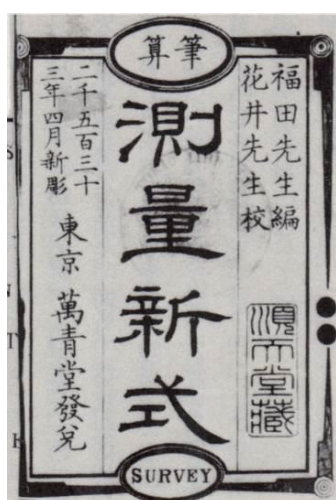 筆算
福田先生編
花井先生校
測量新式
順天堂藏
二千五百三十
三年四月新彫
東京 萬青堂發兌
SURVEY